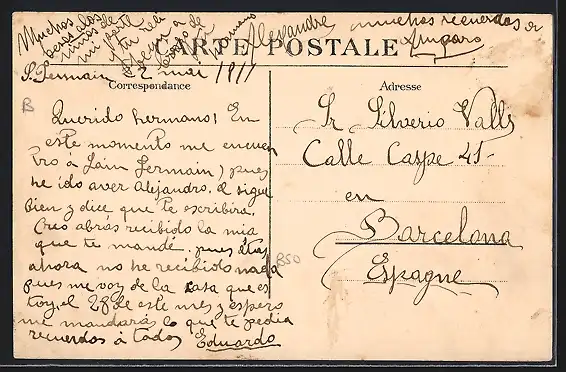 Muchos
besos a los
niños de
mi parte
y tu rec
un
de
hermano
Alexandre
muchos recuerdos de
Amparo
CARTE POSTALE
S. Germain 2 mai 1911
Correspondance
Adresse
Querido hermano! En
este momento me encuen
tro a Sain Jermain) pues
he ido aver Alejandro. el sigue
bien y dice que te escribira.
Creo abrás recibido la mia
que te mandé. pues
ahora no he recibido nada
pues me voy de la casa que es
toy, el 28 de este mes y espero
me mandarás lo que te pedia
recuerdos a todos Eduardo
Sr Silverio Valls
Calle Caspe 45-
en
Barcelona
Espagne
B
B50